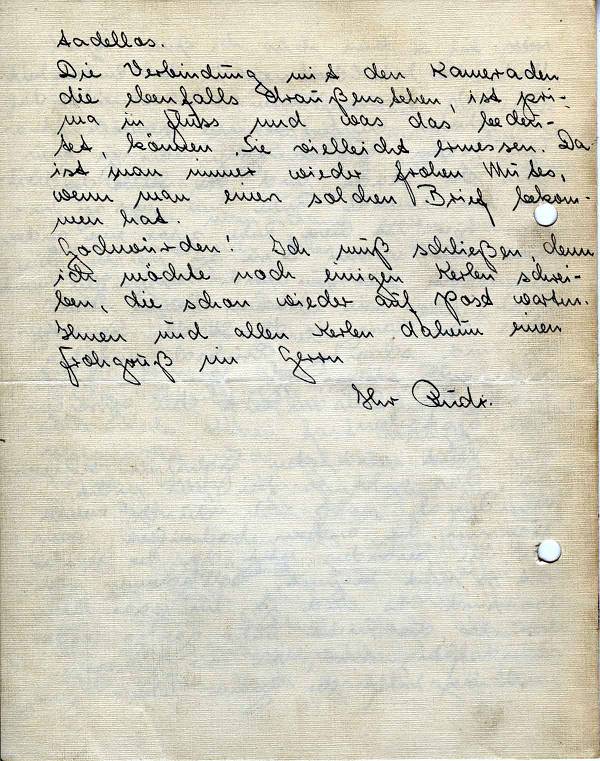 tadellos.
Die Verbindung mit den Kameraden
die ebenfalls draußenstehen, ist pri-
ma in Fluss und was das bedeu-
tet, können Sie vielleicht ermessen. Da
ist man immer wieder frohen Mutes,
wenn man einen solchen Brief bekom-
men hat.
Hochwürden! Ich muß schließen, denn
ich möchte noch einigen Kerlen schrei-
ben, die schon wieder auf Post warten.
Ihnen und allen Kerlen daheim einen
Frohgruß im Herrn
Ihr Rudi.